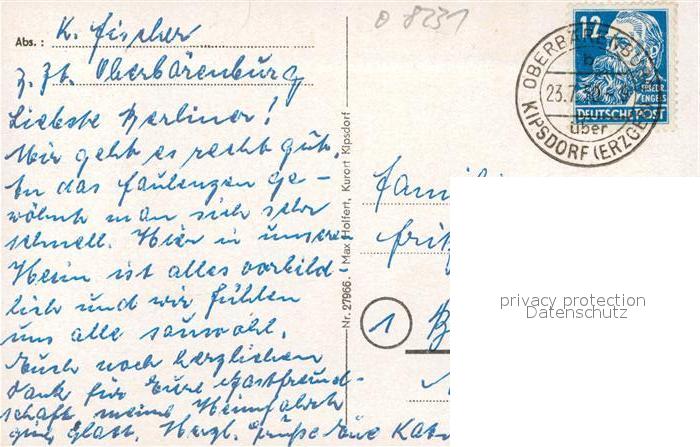 Abs.: K. Fischer
Z. Zt. Oberbärenburg
Liebste Berliner!
Mir geht es recht gut.
An das faulenzen ge-
wöhnt man sich sehr
schnell. Hier in unserem
Heim ist alles vorbild-
lich und wir fühlen
uns alle sauwohl.
Euch noch herzlichen
Dank für Eure Gastfreund-
schaft, meine Heimfahrt
ging glatt. Herzl. Grüße Eure
Nr. 27966. Max Holfert, Kurort Kipsdorf
8231
12
FRIEDR. ENGELS
DEUTSCHE POST
OBERBÄRENBURG
b
23.7.
über
KIPSDORF (ERZGEB)
Famili
Fritz
1 B
privacy protection
Datenschutz